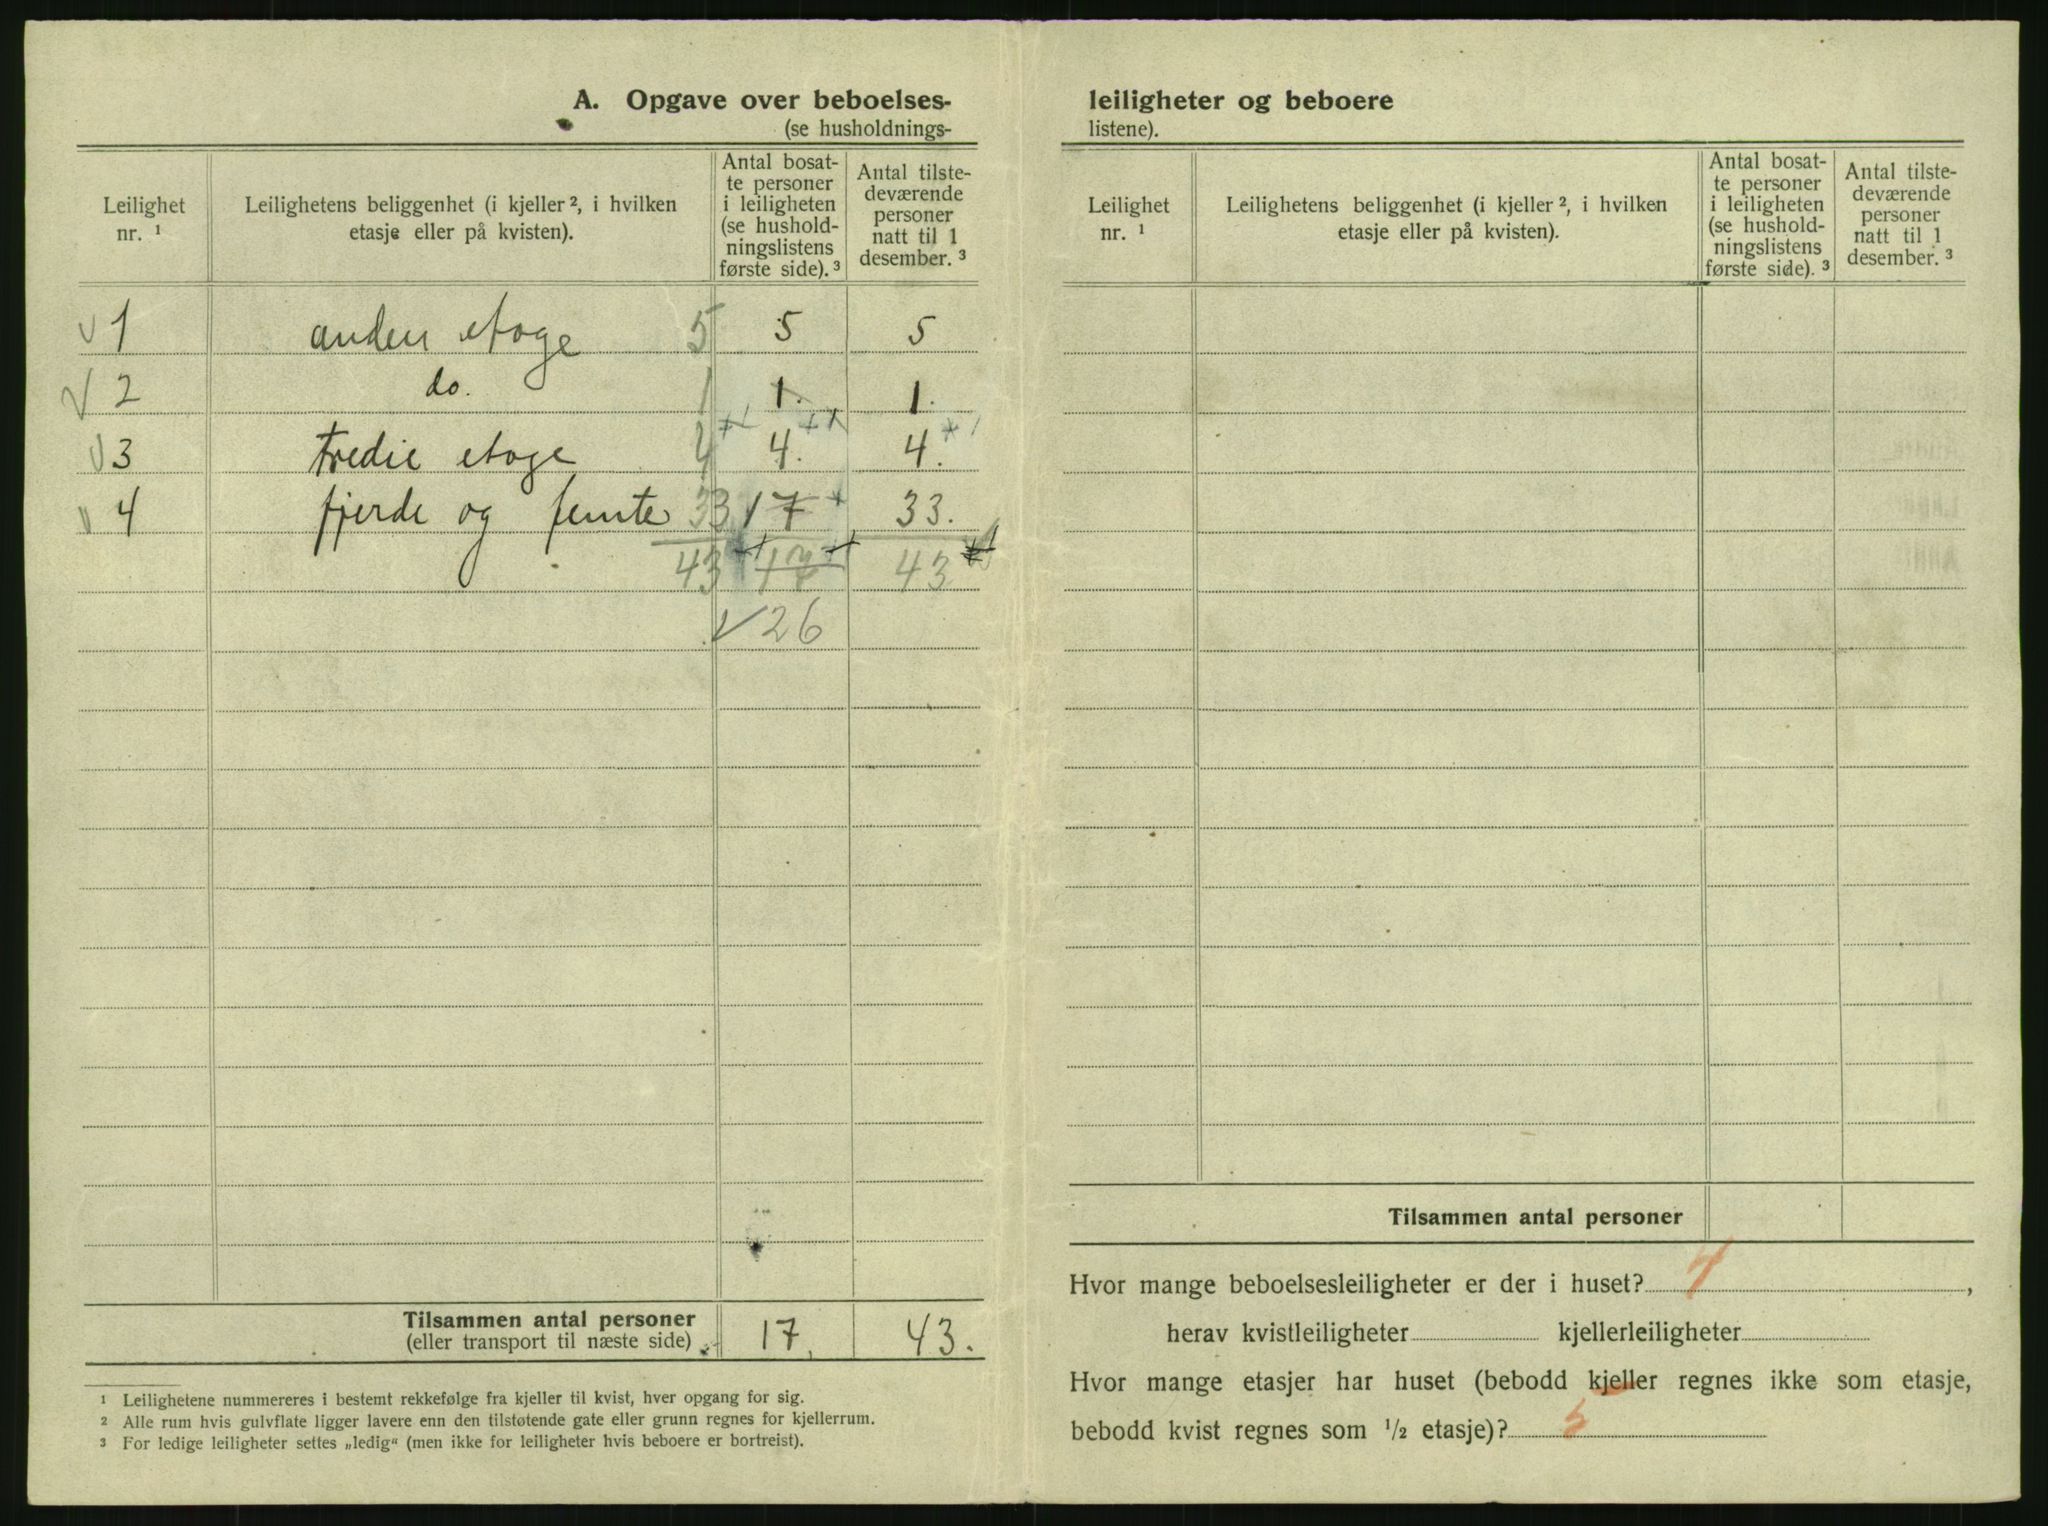 A. Opgave over beboelses-
(se husholdnings-
Leilighet nr. ¹
Leilighetens beliggenhet (i kjeller ², i hvilken etasje eller på kvisten).
Antal bosatte personer i leiligheten (se husholdningslistens første side). ³
Antal tilstedeværende personer natt til 1 desember. ³
√ 1 anden etage 5 5 5
√ 2 do. 1 1. 1.
√ 3 tredie etage 4 4. 4.
√ 4 fjerde og femte 33 17 33.
43 17 43
√ 26
Tilsammen antal personer
(eller transport til næste side) 17, 43.
¹ Leilighetene nummereres i bestemt rekkefølge fra kjeller til kvist, hver opgang for sig.
² Alle rum hvis gulvflate ligger lavere enn den tilstøtende gate eller grunn regnes for kjellerrum.
³ For ledige leiligheter settes „ledig“ (men ikke for leiligheter hvis beboere er bortreist).
leiligheter og beboere
listene).
Leilighet nr. ¹
Leilighetens beliggenhet (i kjeller ², i hvilken etasje eller på kvisten).
Antal bosatte personer i leiligheten (se husholdningslistens første side). ³
Antal tilstedeværende personer natt til 1 desember. ³
Tilsammen antal personer
Hvor mange beboelsesleiligheter er der i huset? 4,
herav kvistleiligheter kjellerleiligheter
Hvor mange etasjer har huset (bebodd kjeller regnes ikke som etasje,
bebodd kvist regnes som ½ etasje)? 5